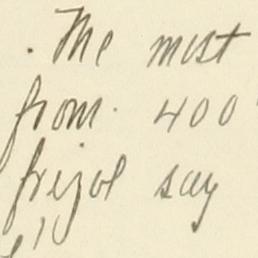 . The mist
from 400
frijol say